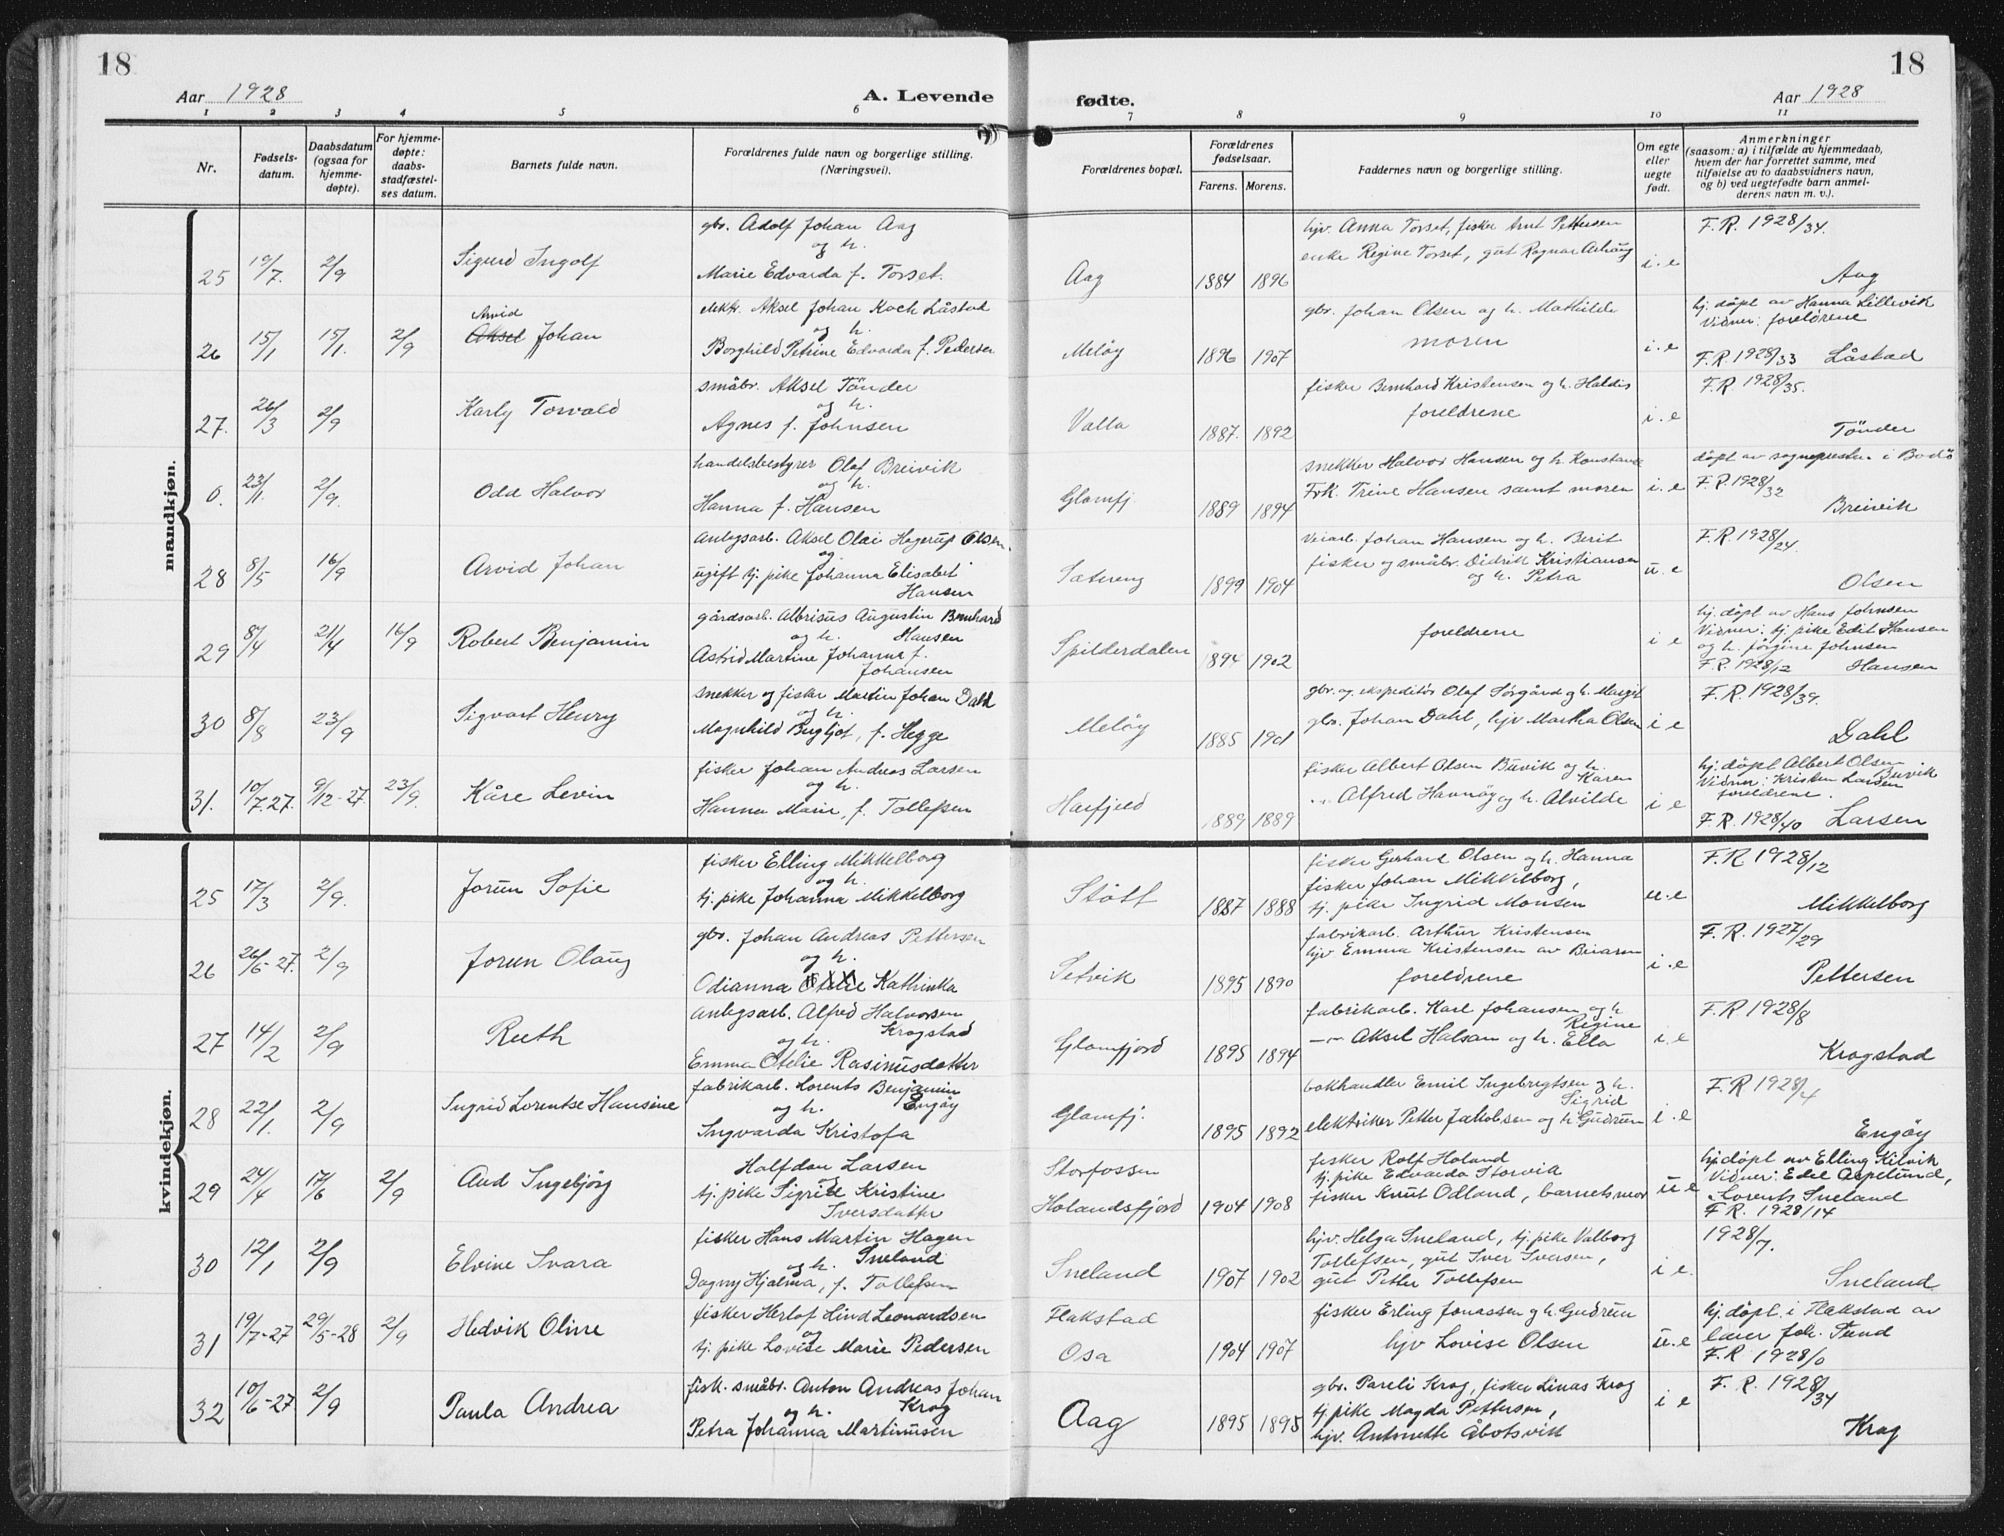 18
18
Aar 1928
A. Levende
fødte.
Aar 1928
1 2 3 4 5 6 7 8 9 10 11
Nr.
Fødsels-
datum.
Daabsdatum
(ogsaa for
hjemme-
døpte).
For hjemme-
døpte:
daabs-
stadfæstel-
ses datum.
Barnets fulde navn.
Forældrenes fulde navn og borgerlige stilling.
(Næringsvei).
Forældrenes bopæl.
Forældrenes
fødselsaar.
Farens. Morens.
Faddernes navn og borgerlige stilling.
Om egte
eller
uegte
født.
Anmerkninger
(saasom: a) i tilfælde av hjemmedaab,
hvem der har forrettet samme, med
tilføielse av to daabsvidners navn,
og b) ved uegtefødte barn anmel-
derens navn m. v.).
mandkjøn.
25 19/7. 2/9 Sigurd Ingolf
gbr. Adolf Johan Aag
og h.
Marie Edvarda f. Torset.
Aag 1884 1896
hjv. Anna Torset, fisker Arnt Pettersen
enke Regine Torset, gut Ragnar
i.e
F.R. 1928/34.
Aag
26 15/1 15/1. 2/9
Arvid
Aksel Johan
elektr. Aksel Johan Koch Låstad
og h.
Borghild Petrine Edvarda f. Pedersen
Meløy 1896 1907
gbr. Johan Olsen og h. Mathilde
moren
i.e
hj. døpt av Hanna Lillevik
Vidner: foreldrene
F.R. 1928/33 Låstad
27. 26/3 2/9 Karly Torvald
småbr. Aksel Tönder
og h.
Agnes f. Johnsen
Valla 1887. 1892
fisker Bernhard Kristensen og h. Haldis
foreldrene
i.e
F.R. 1928/35.
Tönder
0. 23/1. 2/9. Odd Halvor
handelsbestyrer Olaf Breivik
og h.
Hanna f. Hansen
Glomfj. 1889 1894
snekker Halvor Hansen og h. Konstanse
Frk. Trine Hansen samt moren
i.e
døpt av sognepresten i Bodø
F.R. 1928/32
Breivik
28 8/5 16/9 Arvid Johan
anlegsarb. Aksel Olai Hagerup Olsen.
og
ugift tj. pike Johanna Elisabet
Hansen
Sætereng 1899 1904
veiarb. Johan Hansen og h. Berit
fisker og småbr. Didrik Kristiansen
og h. Petra
u.e
F.R. 1928/24.
Olsen
29 8/4 21/4 16/9 Robert Benjamin
gårdsarb. Albrisus Augustin Bernhard
og h. Hansen
Astrid Martine Johanna f.
Johansen
Spilderdalen 1894 1902
foreldrene
i e
hj. døpt av Hans Johnsen
Vidner: tj. pike Edit Hansen
og h. Jörgine Johnsen
F.R. 1928/12 Hansen
30 8/8 23/9 Sigvart Henry
snekker og fisker Martin Johan Dahl
og h.
Magnhild Bergljot, f. Hegge
Meløy 1885 1901
gbr. og ekspeditör Olaf Sørgård og h. Margit
gbr. Johan Dahl, hjv Martha Olsen
i e
F.R. 1928/39.
Dahl
31. 10/7.27. 9/12-27. 23/9. Kåre Levin
fisker Johan Andreas Larsen
og h.
Hanna Marie, f. Tollefsen
Harfjeld 1889 1889
fisker Albert Olsen Buvik og h.
Karen
-"- Alfred Havnøy og h. Alvilde
i e
hj. døpt Albert Olsen
Buvik
Vidner: Kristen Larsen
foreldrene.
F.R. 1928/40 Larsen
kvindekjøn.
25 17/3 2/9. Jorun Sofie
fisker Elling Mikkelborg
og h.
tj. pike Johanna Mikkelborg
Støtt 1887 1888
fisker Gerhard Olsen og h. Hanna
fisker Johan Mikkelborg,
tj. pike Ingrid Monsen
u.e
F.R 1928/12
Mikkelborg
26 26/6-27. 2/9 Jorun Olaug
gbr. Johan Andreas Pettersen
og h.
Odianna Otelie Kathinka
Setvik 1895 1890
fabrikarb. Arthur Kristensen
hjv Emma Kristensen av Beiaren
foreldrene
i.e
F.R. 1927/29
Pettersen
27 14/2 2/9 Ruth
anlegsarb. Alfred Halvorsen
Krogstad
og h.
Emma Otelie Rasmusdatter
Glomfjord 1895 1894
fabrikarb. Karl Johansen og h
Regine
-"- Aksel Halsan og h. Ella
i.e
F.R 1928/8
Krogstad
28 22/1. 2/9 Ingrid Lorentse Hansine
fabrikarb. Lorents Benjamin
og h. Engøy
Ingvarda Kristofa
Glomfj. 1895 1892
bokhandler Emil Ingebrigtsen og h.
Sigrid
elektriker Petter Jakobsen og h Gudrun
i.e
F.R 1928/4
Engøy
29 24/4 17/6 2/9 Aud Ingebjørg
Halfdan Larsen
tj. pike Sigrid Kristine
Iversdatter
Storfossen
Holandsfjord 1904 1908
fisker Rolf Holand
tj. pike Edvarda Storvik
fisker Knut Odland, barnets mor
u e
hj. døpt av Elling Kilvik
Vidner: Edel Asplund,
Lorents Sneland
F.R. 1928/14
30 12/1 2/9 Elvine Svara
fisker Hans Martin Hagen
og h. Sneland
Dagny Hjalma, f. Tollefsen
Sneland 1907 1902
hjv. Helga Sneland, tj. pike Valborg
Tollefsen, gut Iver Iversen,
gut Petter Tollefsen
i e.
1928/7.
Sneland
31 19/7-27 29/5-28 2/9 Hedvik Oline
fisker Herlof Lind Leonardsen
og
tj. pike Lovise Marie Pedersen
Flakstad
Osa 1904 1907
fisker Erling Jonassen og h. Gudrun
hjv Lovise Olsen
u.e
hj. døpt i Flakstad av
lærer Joh. Tund
F.R 1928/0
32 10/6-27. 2/9 Paula Andrea
fisk. småbr. Anton Andreas Johan
og h. Krog
Petra Johanna Martinusen
Aag 1895 1895
gbr. Pareli Krog, fisker Linas Krog
tj. pike Magda Pettersen,
hjv. Antonette Åbotsvik
i e
F.R. 1928/34
Krog